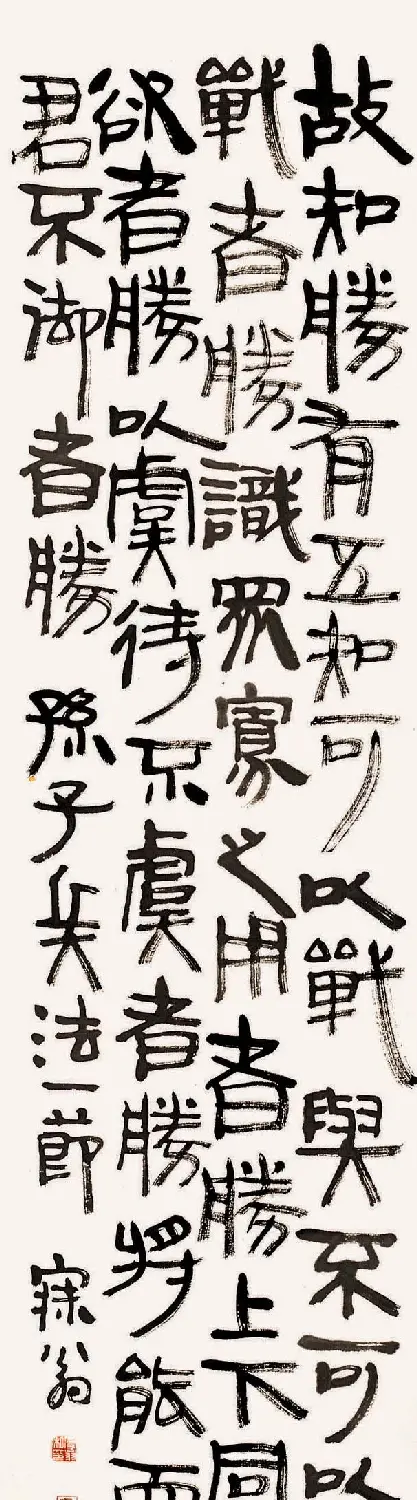 故知勝有五知可以戰與不可以
戰者勝識眾寡之用者勝上下同
欲者勝以虞待不虞者勝將能而
君不御者勝 孫子兵法一節 寐翁